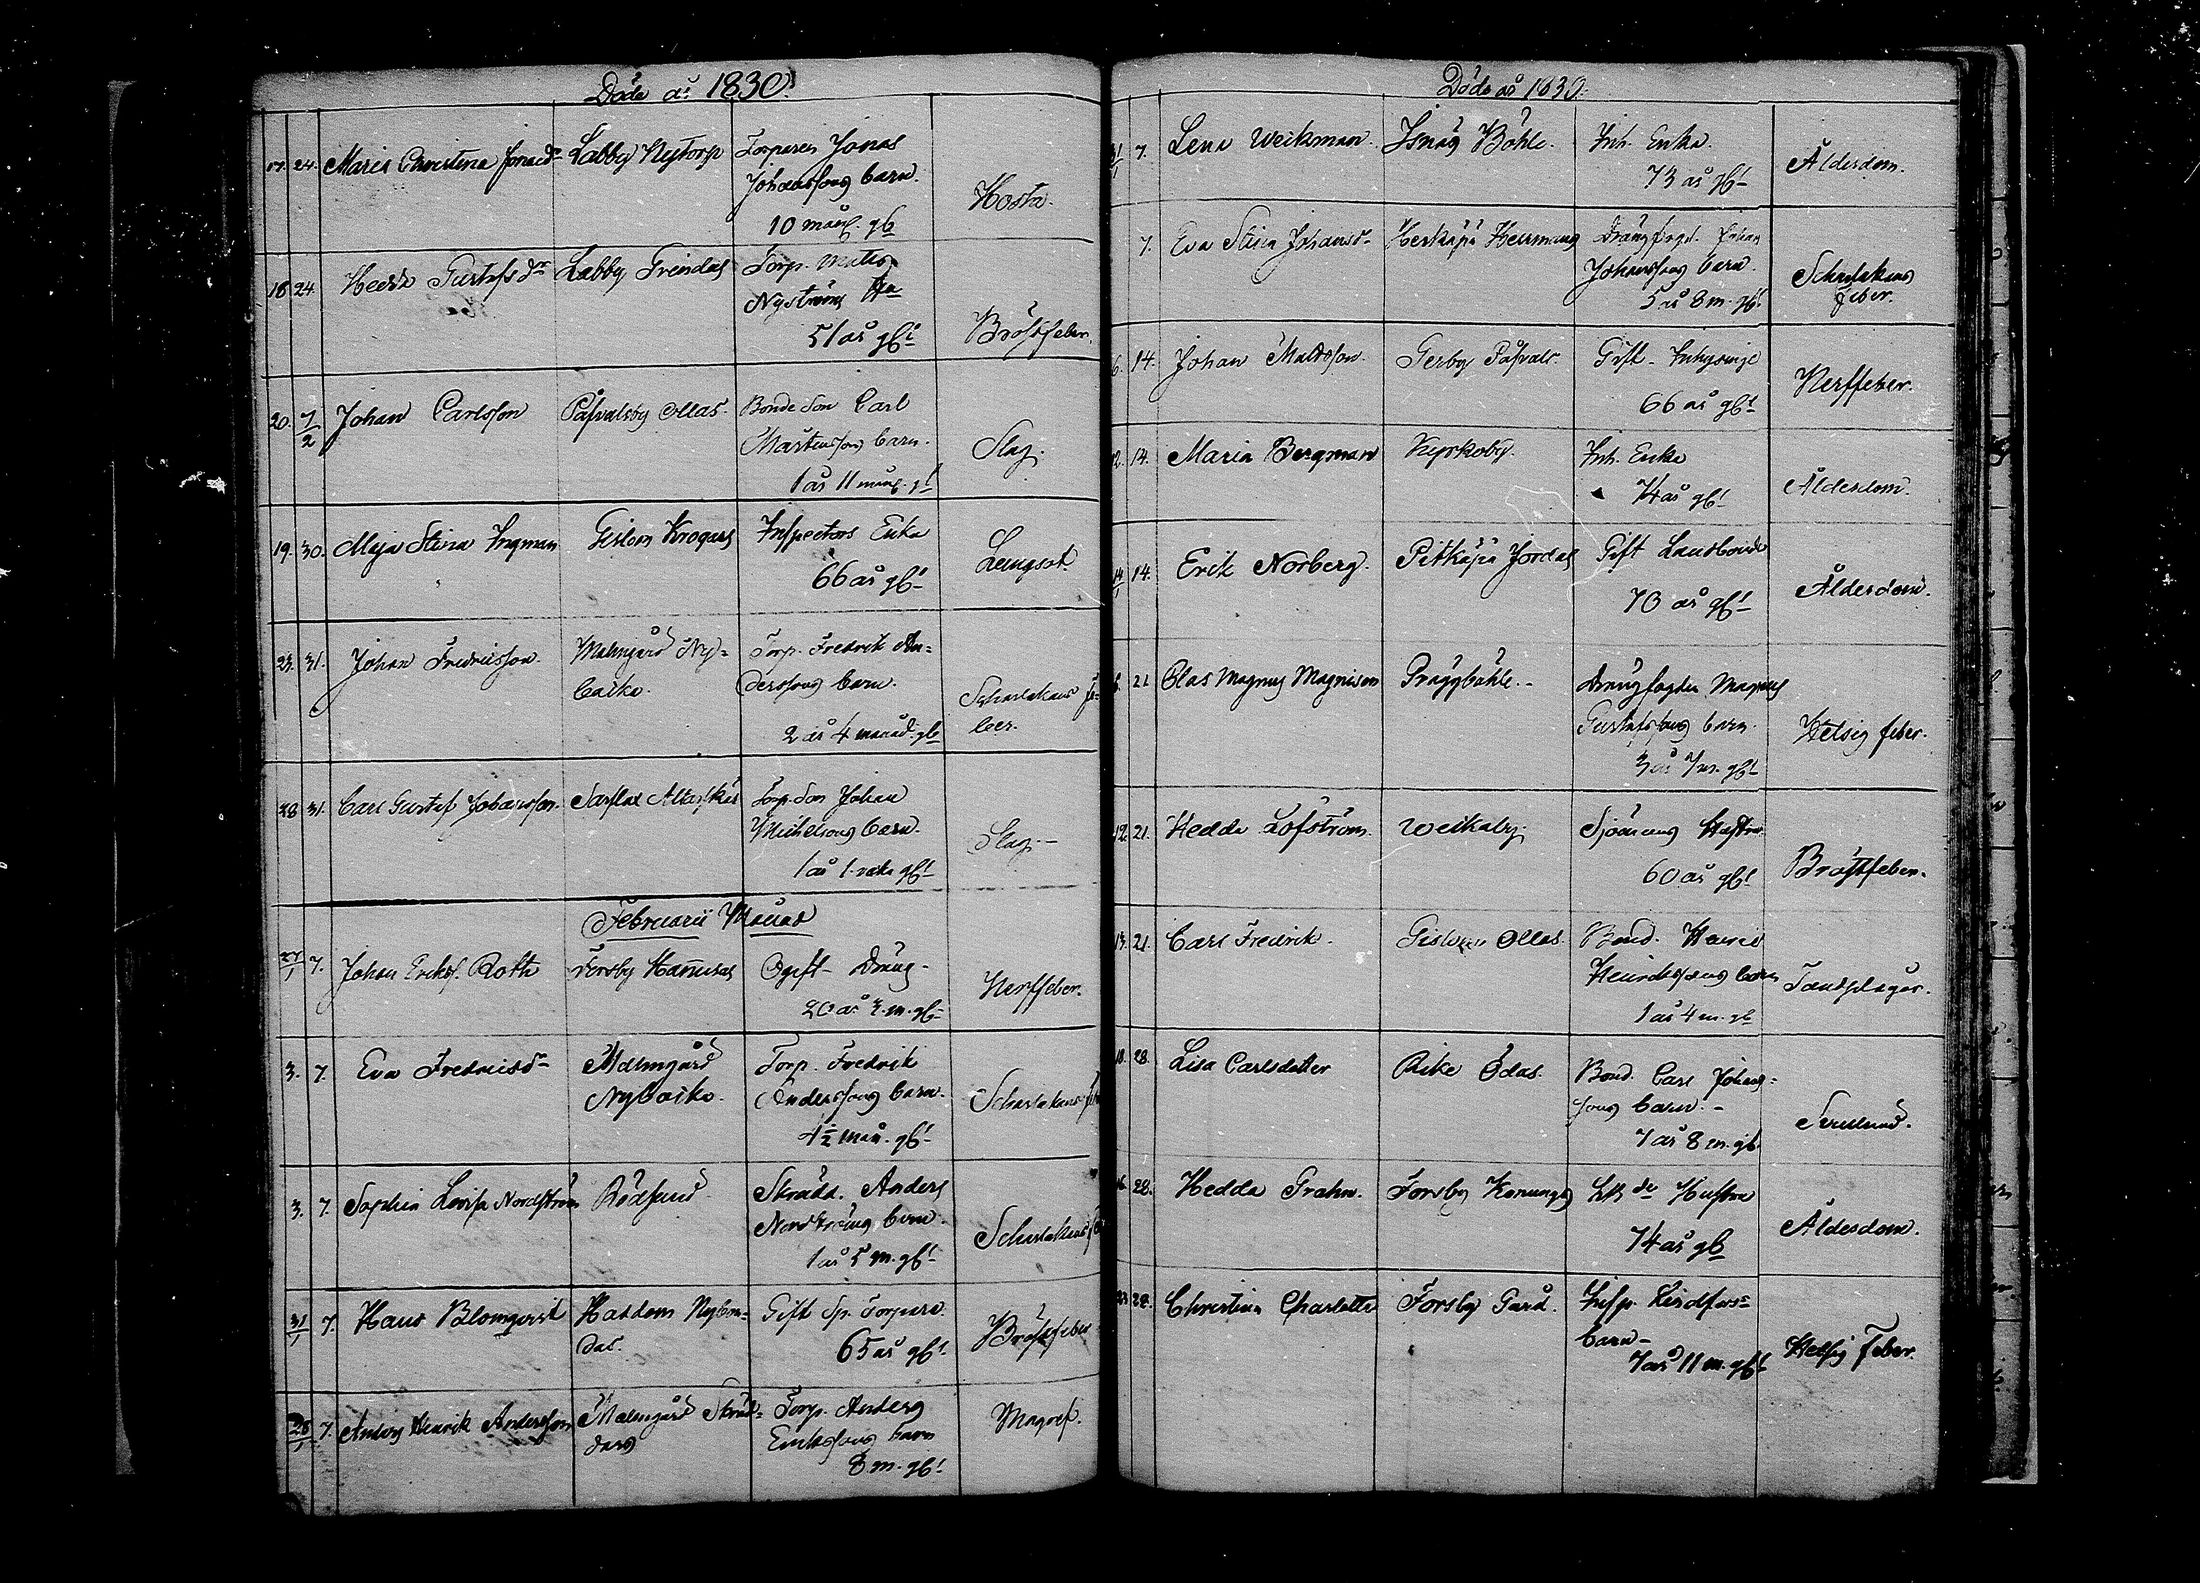 Döde år 1830.
17. 24. Maria Christina Jonaedr Labby Nytorp Torparen Jonas
Johanssons barn.
10 mån. gl. Hosta.
18 24 Hedda Gustafsdr Labby Grindas Torp. Matts
Nyströms Hu
51 år gl. Bröstfeber.
20. 7/2 Johan Carlsson Påfvalsby Ollas. Bonde Son Carl
Mårtenssons barn.
1 år 11 mån. gl. Slag.
19. 30. Maja Stina Ingman Gislom Krogars Inspectors Enka
66 år gl. Lungsot.
23. 31. Johan Fredricsson. Malmgård Ny- Torp. Fredrik An-
backa. derssons barn.
2 år 4 månad. gl. Scharlakans fe-
ber.
28 31. Carl Gustaf Johansson. Sarflax Torp. Son Johan
Michelsons barn.
1 år 1 veka gl. Slag.
Februarii Månad
27/1 7. Johan Eriks. Roth Forsby Hannusas Ogift Dräng.
20 år 3 m. gl. Nerffeber.
3. 7. Eva Fredricsdr Malmgård Torp. Fredrik
Nybacka. Anderssons barn.
4½ mån. gl. Scharlakans
3. 7. Sophia Lovisa Nordström Rödsund Skrädd. Anders
Nordströms barn.
1 år 5 m. gl. Scharlakans
31/1 7. Hans Blomqvist Haddom Nybon- Gift Sp. Torpare.
das. 65 år gl. Bröstfeber
28/1 7. Anders Henrik Andersson Malmgård Skräd- Torp. Anders
dars Erikssons barn
8 m. gl. Magref.
Döde år 1830.
31/1 7. Lena Weckman. Isnäs Böhle. Inh. Enka.
73 år gl. Ålderdom.
7. Eva Stina Johansdr Herkäpä Hermans Drängfogd. Johan
Johanssons barn.
5 år 8 m. gl. Scharlakans
feber.
6. 14. Johan Mattsson. Gerby Påfvals. Gift Inhysinge
66 år gl. Nerffeber.
12. 14. Maria Bergman Kyrkoby. Inh. Enka
74 år gl. Ålderdom.
14/1 14. Erik Norberg. Pitkäpä Jordas Gift Landbonde
70 år gl. Ålderdom.
6. 21 Clas Magnus Magnison Präggböhle. Drängfogden Magnus
Gustafssons barn.
3 år 7 m. gl. Hetsig feber.
12. 21. Hedda Löfström. Weckaby. Sjömans Hustru
60 år gl. Bröstfeber.
13. 21. Carl Fredrik. Gislom Ollas. Bond. Henric
Henrikssons barn
1 år 4 m. gl. Tandplågor.
18. 28. Lisa Carlsdotter Rike Ödas. Bond. Carl Johans-
sons barn.
7 år 8 m. gl.
16. 28. Hedda Grahn. Forsby Konungs Hustru
74 år gl. Ålderdom.
23 28. Christina Charlotta Forsby Gård. Insp. Lindfors
barn
7 år 11 m. gl. Hetsig Feber.